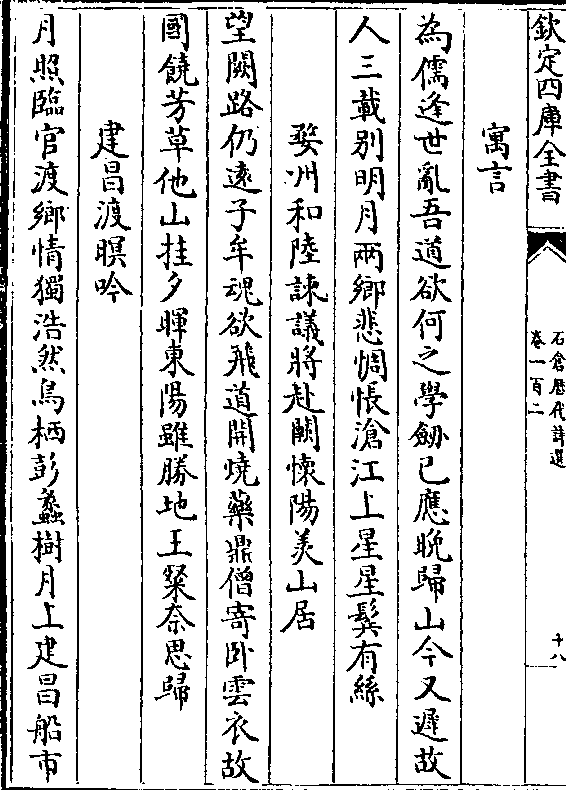 欽定四庫全書
石倉歷代詩選
卷一百二
十八
寓言
為儒逢世亂吾道欲何之學劒已應晩歸山今又遲故
人三載别明月兩鄉悲惆悵滄江上星星鬂有絲
婺州和陸諫議將赴闕懷陽羡山居
望闕路仍遠子牟魂欲飛道開燒藥鼎僧寄卧雲衣故
國饒芳草他山挂夕暉東陽雖勝地王粲奈思歸
建昌渡暝吟
月照臨官渡鄉情獨浩然鳥栖彭蠡樹月上建昌船市